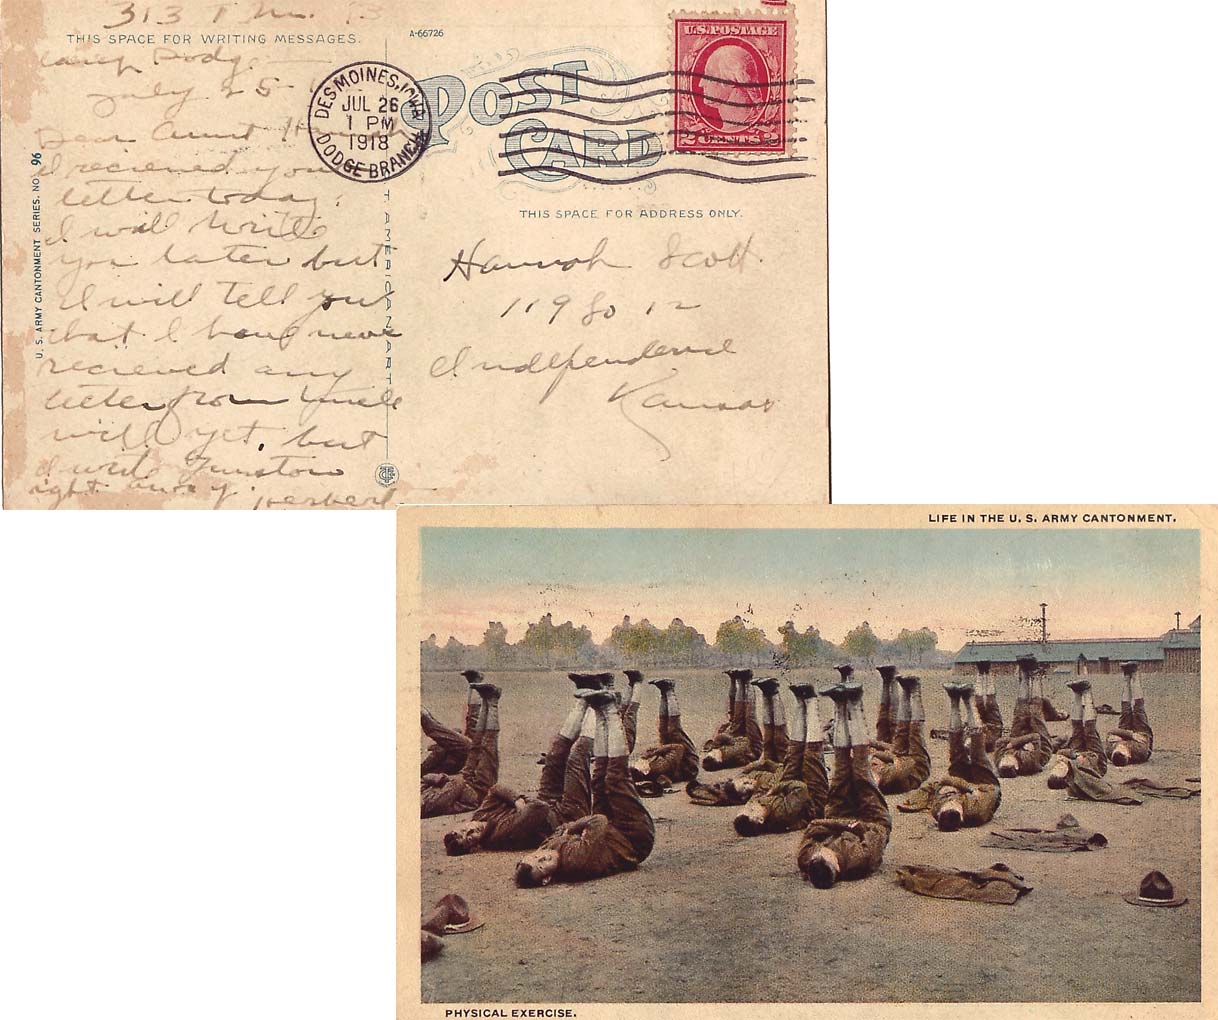 313 T. M.
THIS SPACE FOR WRITING MESSAGES.
Camp Dodge
July 25
Dear Aunt
I recieved your
letter today.
I will write
you later but
I will tell you
that I have never
recieved any
letter from Uncle
will yet, but
I write Funston
right away. Herbert
U. S. ARMY CANTONMENT SERIES. NO. 96
A-66726
POST CARD
DES MOINES, IOWA
JUL 26
1 PM
1918
DODGE BRANCH
U.S. POSTAGE
2 CENTS 2
THIS SPACE FOR ADDRESS ONLY.
Hannah Scott
119 So 12
Independence
Kansas
T AMERICAN ART
LIFE IN THE U. S. ARMY CANTONMENT.
PHYSICAL EXERCISE.